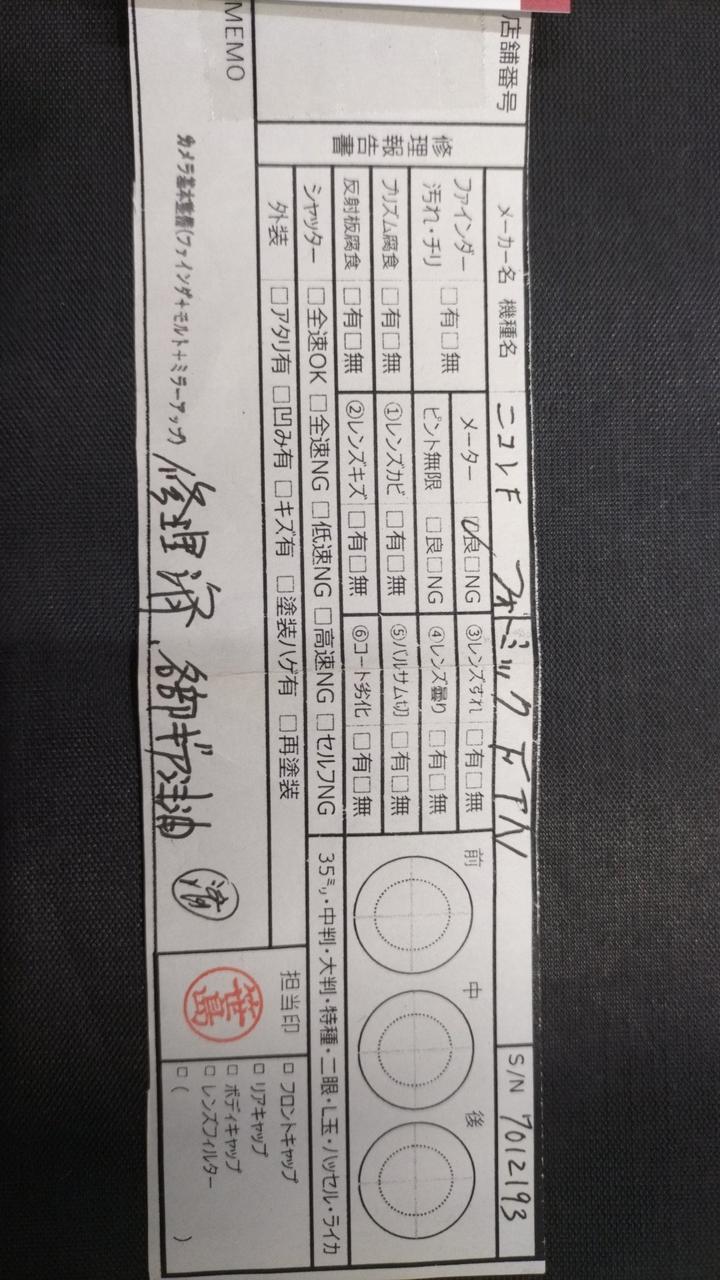 店舗番号
修理報告書
メーカー名 機種名 ニコンF フォトミック F アイ S/N 7012193
ファインダー汚れ・チリ □有□無
メーター ☑良□NG
③レンズすれ □有□無
ピント無限 □良□NG
④レンズ曇り □有□無
プリズム腐食 □有□無
①レンズカビ □有□無
⑤バルサム切 □有□無
反射板腐食 □有□無
②レンズキズ □有□無
⑥コート劣化 □有□無
前 中 後
シャッター □全速OK □全速NG □低速NG □高速NG □セルフNG
35ミリ・中判・大判・特種・二眼・L玉・ハッセル・ライカ
外装 □アタリ有 □凹み有 □キズ有 □塗装ハゲ有 □再塗装
MEMO
カメラ基本整備(ファインダ+モルト+ミラーアップ)
修理済、各部ギア注油 済
担当印
笹島
□ フロントキャップ
□ リアキャップ
□ ボディキャップ
□ レンズフィルター
□ ( )